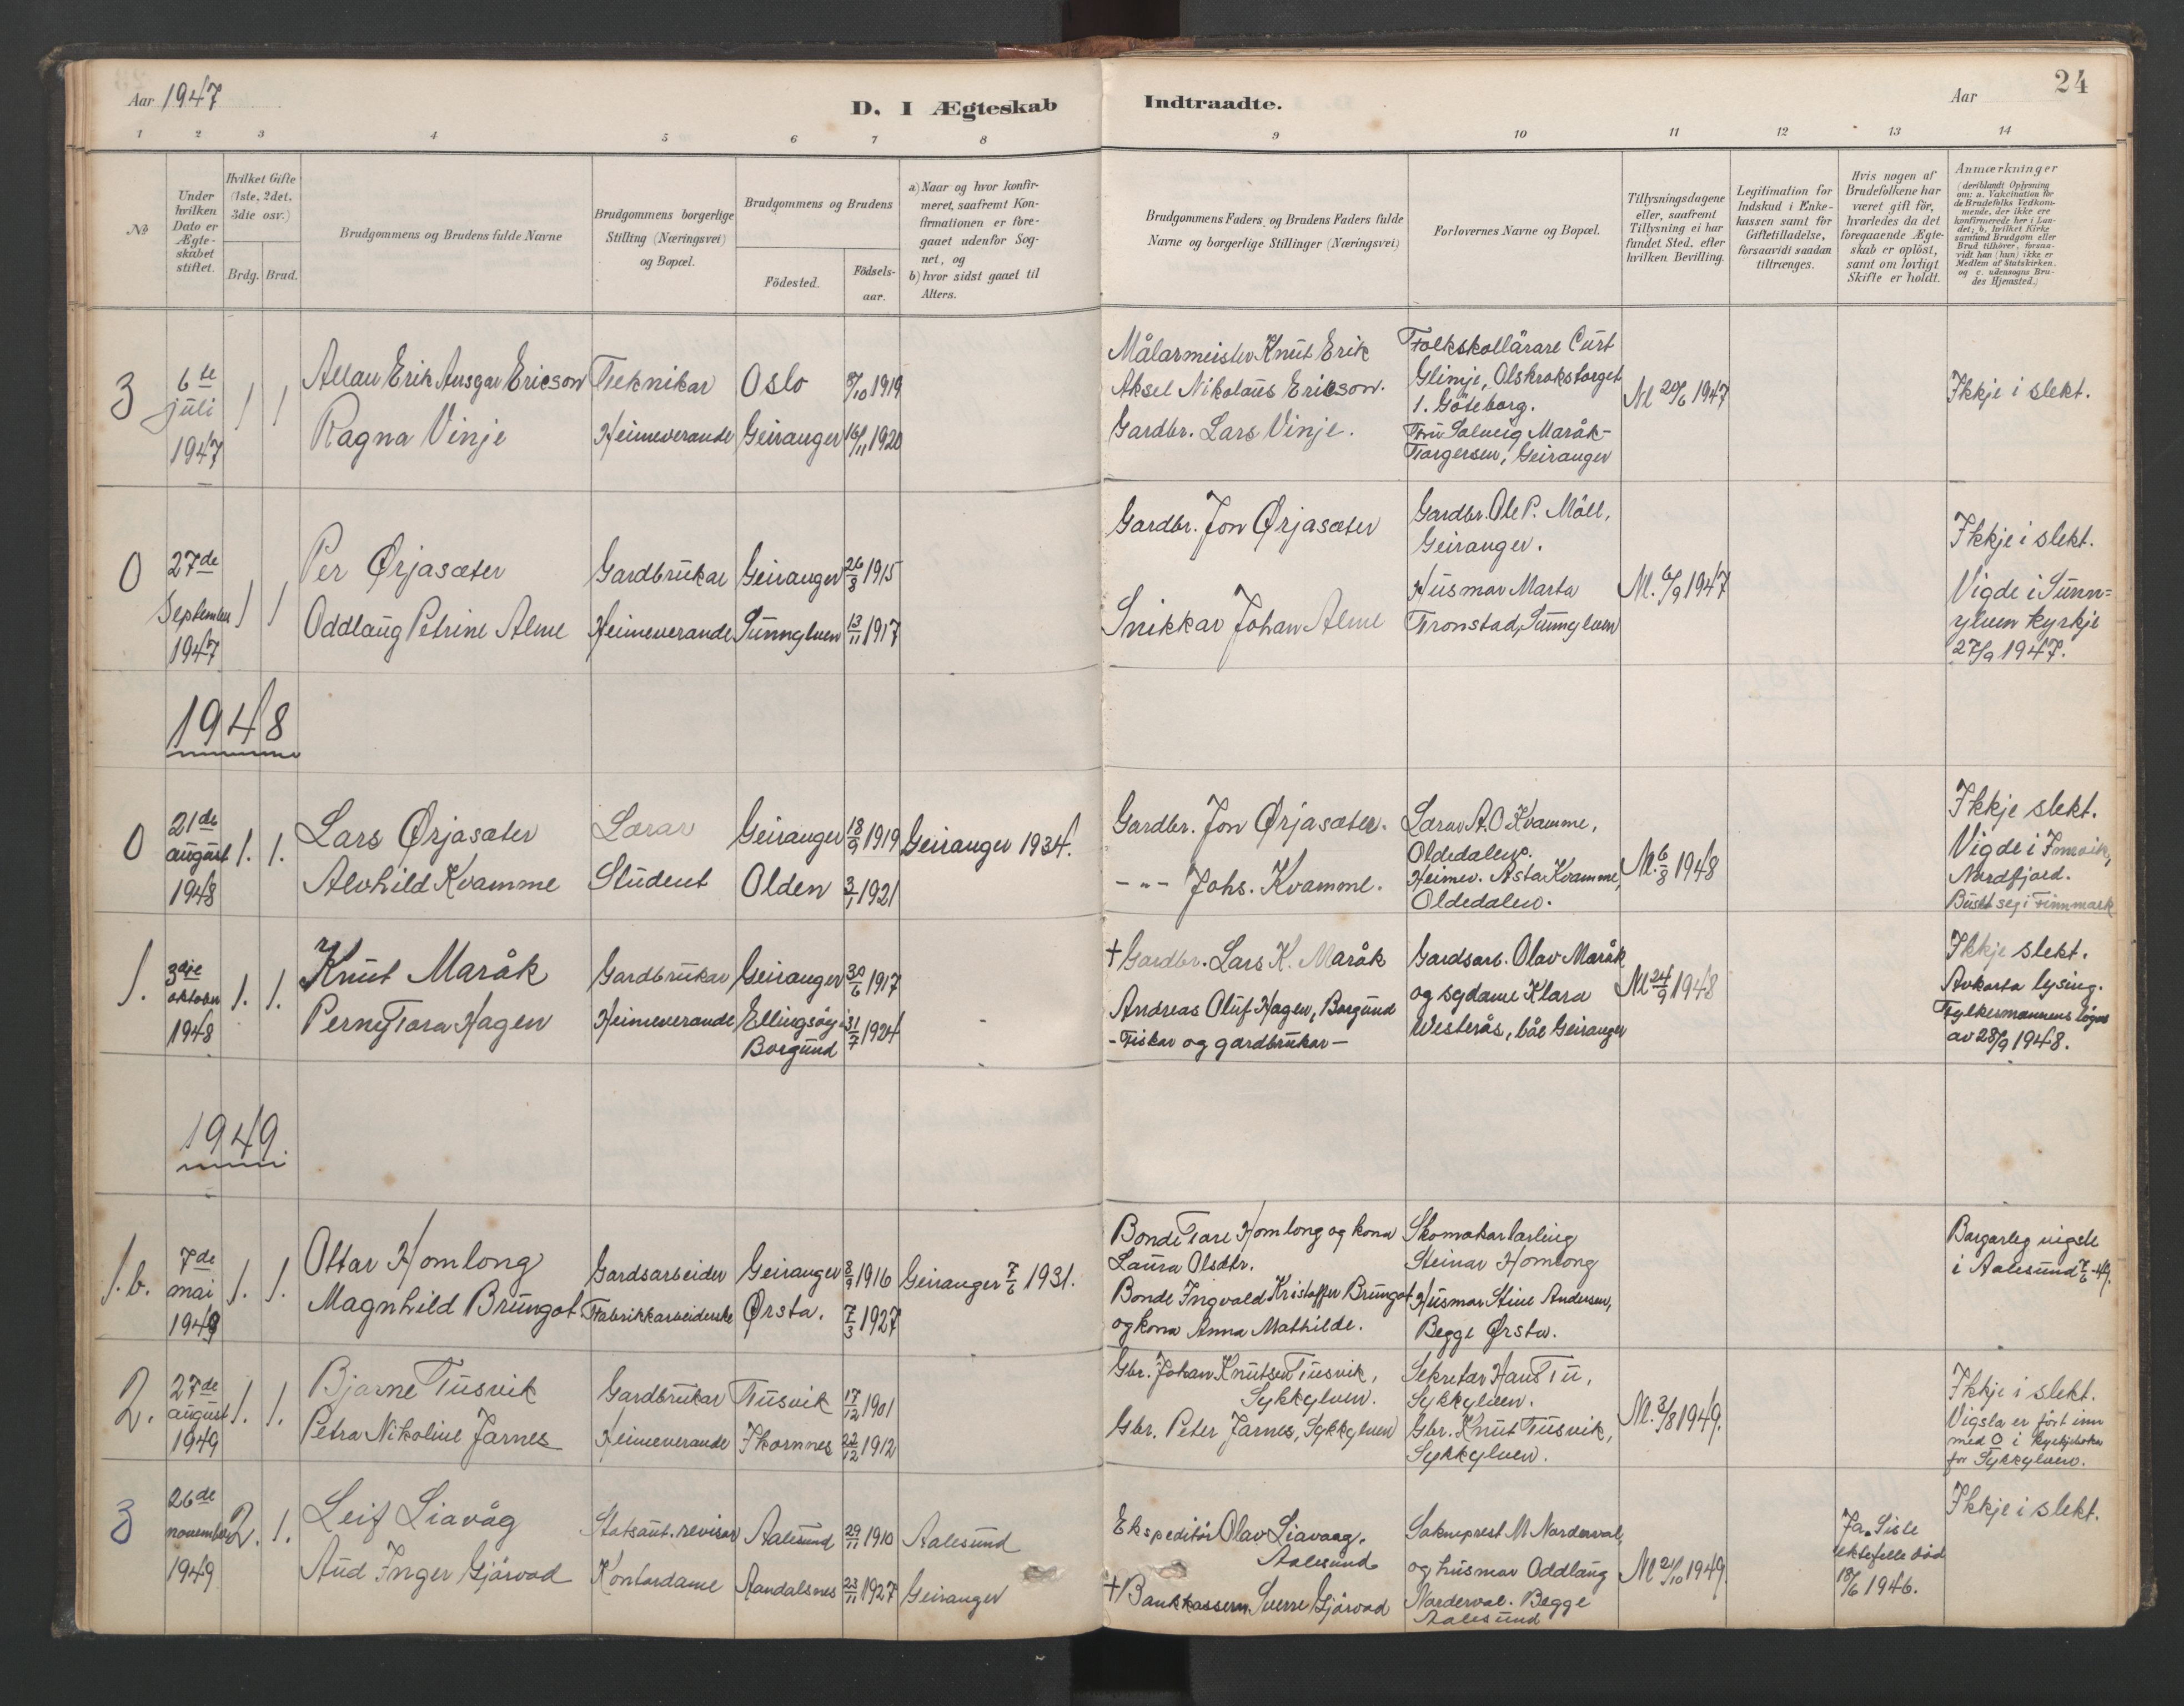 Aar 1947
D. I Ægteskab Indtraadte.
Aar
24
1 2 3 4 5 6 7 8 9 10 11 12 13 14
No
Under hvilken Dato er Ægteskabet stiftet.
Hvilket Gifte (1ste, 2det, 3die osv.)
Brdg. Brud.
Brudgommens og Brudens fulde Navne
Brudgommens borgerlige Stilling (Næringsvei) og Bopæl.
Brudgommens og Brudens
Födested.
Födselsaar.
a) Naar og hvor konfirmeret, saafremt Konfirmationen er foregaaet udenfor Sognet, og
b) hvor sidst gaaet til Alters.
Brudgommens Faders og Brudens Faders fulde Navne og borgerlige Stillinger (Næringsvei)
Forlovernes Navne og Bopæl.
Tillysningsdagene eller, saafremt Tillysning ei har fundet Sted, efter hvilken Bevilling.
Legitimation for Indskud i Enkekassen samt for Giftetilladelse, forsaavidt saadan tiltrænges.
Hvis nogen af Brudefolkene har været gift för, hvorledes da det foregaaende Ægteskab er oplöst, samt om lovligt Skifte er holdt.
Anmærkninger
(deriblandt Oplysning om: a. Vakcination for de Brudefolks Vedkommende, der ikke ere konfirmerede her i Landet; b. hvilket Kirkesamfund Brudgom eller Brud tilhörer, forsaavidt han (hun) ikke er Medlem af Statskirken. og c. udensogns Brudes Hjemsted.)
3
6te juli 1947
1 1
Allan Erik Ansgar Ericson
Ragna Vinje
Teknikar
Heimeverande
Oslo 8/10 1919
Geiranger 16/11 1920
Målarmeister Knut Erik
Aksel Nikolaus Ericson.
Gardbr. Lars Vinje.
Folkskollärare Curt
Glimje, Olskrokstorget
1. Göteborg.
Fru Solveig Maråk-
Torgersen, Geiranger
M 20/6 1947
Ikkje i slekt.
0
27de September 1947
1 1
Per Ørjasæter
Oddlaug Petrine Alme
Gardbrukar
Heimeverande
Geiranger 26/8 1915
Sunnylven 13/11 1917
Gardbr. Jon Ørjasæter
Snikkar Johan Alme
Gardbr. Ole P. Möll,
Geiranger.
Husmor Marta
Tronstad, Sunnylven
M. 6/9 1947
Ikkje i slekt.
Vigde i Sunn=
ylven kyrkje
27/9 1947.
1948
0
21de august 1948
1. 1.
Lars Ørjasæter
Alvhild Kvamme
Lærar
Student
Geiranger 18/9 1919
Olden 3/1 1921
Geiranger 1934.
Gardbr. Jon Ørjasæter.
- " - Johs. Kvamme.
Lærar A. O. Kvamme,
Oldedalen.
Heimev. Asta Kvamme,
Oldedalen.
M. 6/8 1948
Ikkje slekt.
Vigde i Innvik,
Nordfjord.
Busett seg i Finnmark
1.
3dje oktober 1948
1. 1.
Knut Maråk
Perny Tora Hagen
Gardbrukar
Heimeverande
Geiranger 30/6 1917
Ellingsöy i Borgund 31/7 1924
† Gardbr. Lars K. Maråk
Andreas Oluf Hagen, Borgund
- Fiskar og gardbrukar -
Gardsarb. Olav Maråk
og sydame Klara
Westerås, båe Geiranger
M 24/9 1948
Ikkje slekt.
Avkorta lysing.
Fylkesmannens løyve
av 28/9 1948.
1949.
1.b.
7de mai 1949
1. 1.
Ottar Homlong
Magnhild Brungot
Gardsarbeider
Fabrikkarbeiderske
Geiranger 8/9 1916
Ørsta. 7/3 1927
Geiranger 7/6 1931.
Bonde Tore Homlong og kona
Laura Olsdtr.
Bonde Ingvald Kristoffer Brungot
og kona Anna Mathilde.
Skomakarlærling
Steinar Homlong
Husmor Stine Andersen,
Begge Ørsta.
Borgarleg vigsle
i Aalesund 7/5-49.
2.
27de august 1949
1. 1.
Bjarne Tusvik
Petra Nikoline Jarnes
Gardbrukar
Heimeverande
Tusvik 17/12 1901
Ikornnes 22/12 1912
Gbr. Johan Knutsen Tusvik,
Sykkylven.
Gbr. Peter Jarnes, Sykkylven
Sekretær Hans Tu,
Sykkylven.
Gbr. Knut Tusvik,
Sykkylven.
M. 3/8 1949.
Ikkje i slekt.
Vigsla er ført inn
med 0 i kyrkjeboka
for Sykkylven.
3
26de november 1949
2. 1.
Leif Liavåg
Aud Inger Gjörvad
Statsaut. revisor
Kontordame
Aalesund 29/11 1910
Aandalsnes 23/11 1927
Aalesund
Geiranger
Ekspeditör Olav Liavaag.
Aalesund
† Bankkasserer Sverre Gjörvad
Sokneprest M Norderval,
og husmor Oddlaug
Norderval. Begge
Aalesund
M 21/10 1949.
Ja. Siste
ektefelle död
18/6 1946.
Ikkje i slekt.